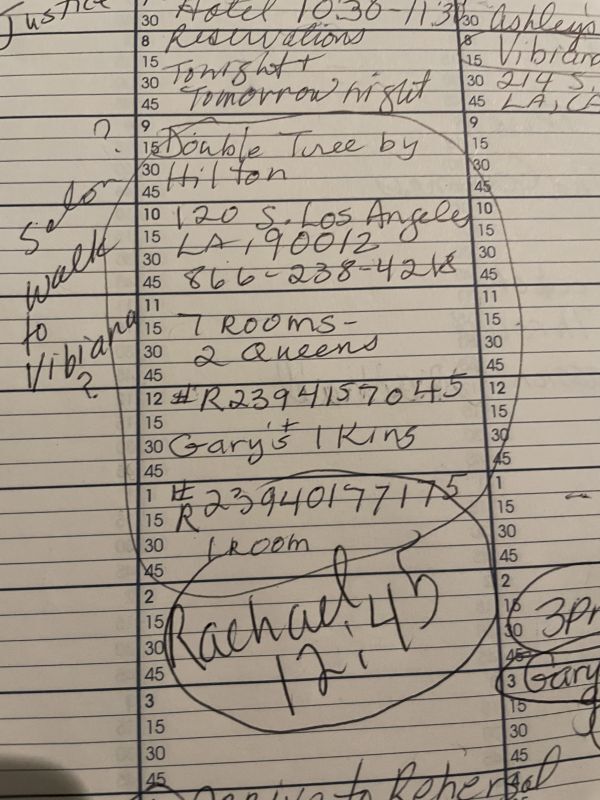 Justice
Hotel 10:30-11:30
Reservations
Tonight +
Tomorrow night
Double Tree by
Hilton
120 S. Los Angeles
LA, 90012
866-238-4218
7 Rooms-
2 Queens
#R2394157045
Gary's + 1 King
#
R 23940177175
1 Room
Rachael
12:45
?
Salon
walk
to
Vibiana
?
Ashley's
Vibiana
214 S.
LA, CA
3pm
Gary
to Rehersal
30
8
15
30
45
9
15
30
45
10
15
30
45
11
15
30
45
12
15
30
45
1
15
30
45
2
15
30
45
3
15
30
45
30
8
15
30
45
9
15
30
45
10
15
30
45
11
15
30
45
12
15
30
45
1
15
30
45
2
15
30
45
3
15
30
45